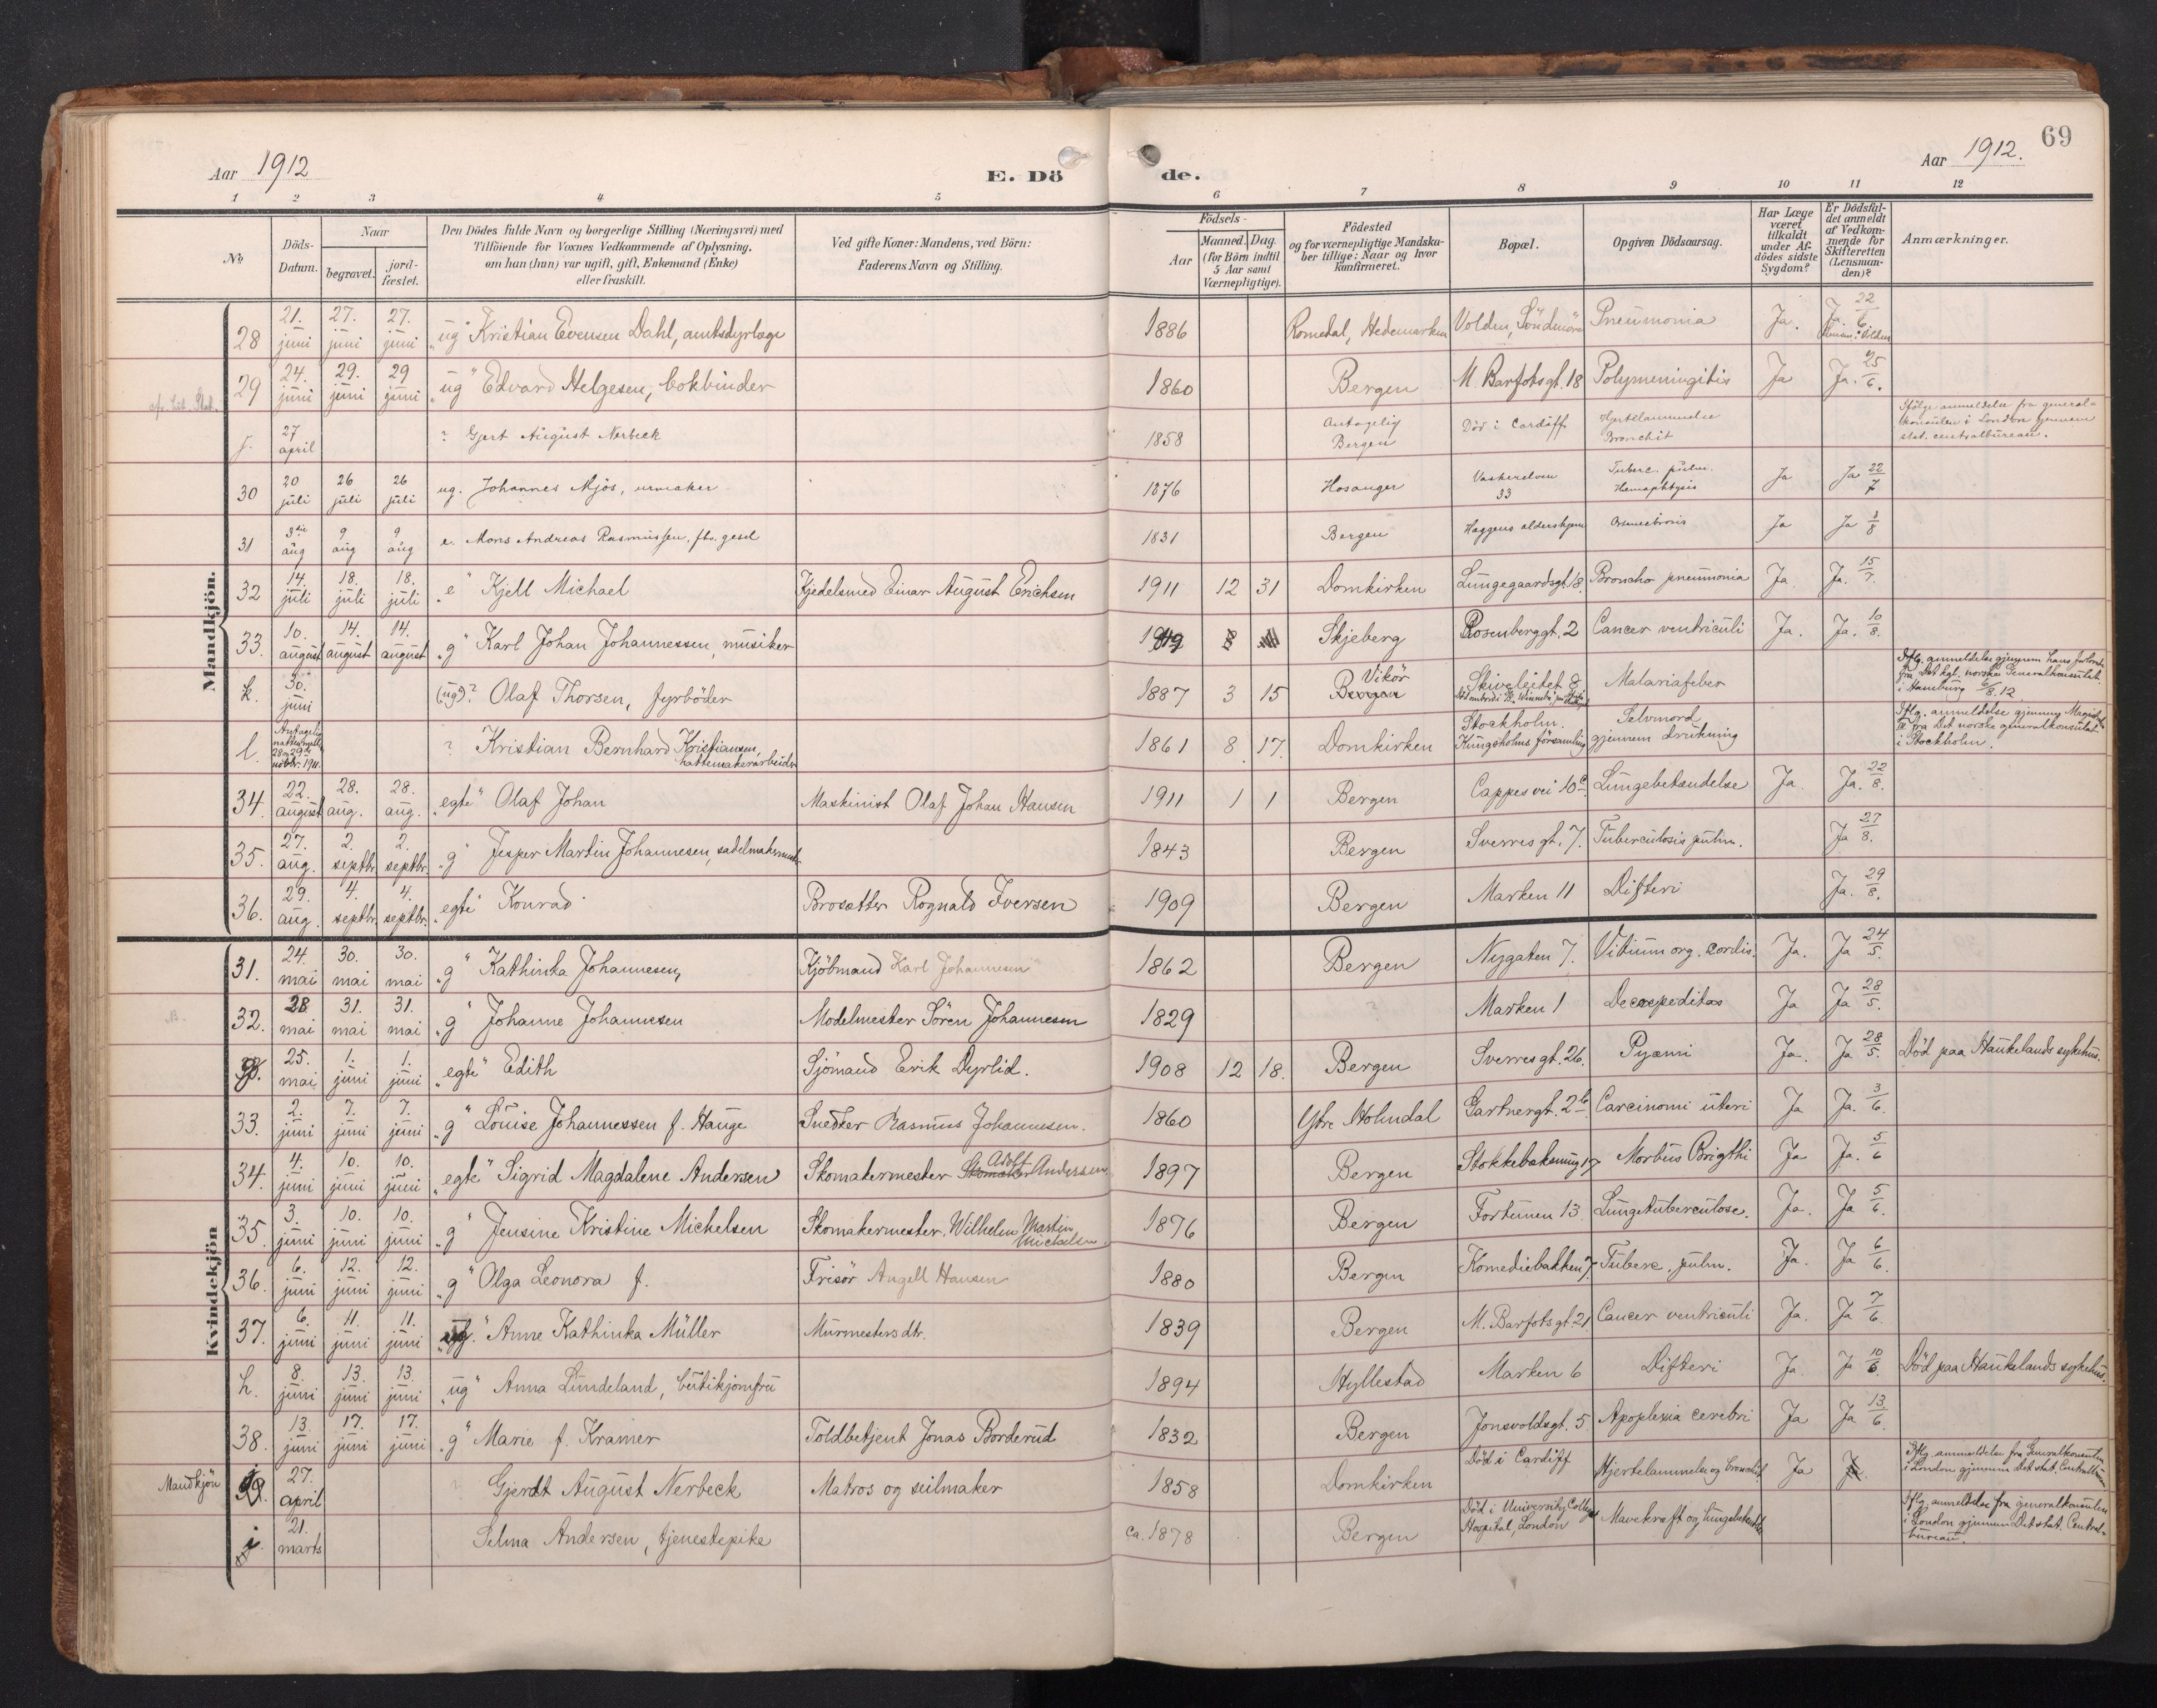 69
Aar 1912
E. Dö de.
Aar 1912.
1 2 3 4 5 6 7 8 9 10 11 12
No.
Döds-
Datum.
Naar
begravet.
jord-
fæstet.
Den Dödes fulde Navn og borgerlige Stilling (Næringsvei) med
Tilföiende for Voxnes Vedkommende af Oplysning,
om han (hun) var ugift, gift, Enkemand (Enke)
eller fraskilt.
Ved gifte Koner: Mandens, ved Börn:
Faderens Navn og Stilling.
Födsels-
Aar
Maaned. Dag.
(for Börn indtil
5 Aar samt
Værnepligtige).
Födested
og for værnepligtige Mandska-
ber tillige: Naar og hvor
konfirmeret.
Bopæl.
Opgiven Dödsaarsag.
Har Læge
været
tilkaldt
under Af-
dödes sidste
Sygdom?
Er Dödsfal-
det anmeldt
af Vedkom-
mende for
Skifteretten
(Lensman-
den)?
Anmærkninger.
Mandkjön.
28 21. juni 27. juni 27. juni "ug" Kristian Evensen Dahl, amtsdyrlæge 1886 Romedal, Hedemarken Volden, Söndmöre Pneumonia Ja. Ja. 22/6
29 24. juni 29. juni 29 juni "ug" Edvard Helgesen, bokbinder 1860 Bergen M. Barfotsgt. 18 Polymeningitis Ja Ja. 25/6.
j. 27 april ? Gjert August Nerbeck 1858 Antagelig Bergen Död i Cardiff Hjertelammelse Bronchit Ifölge anmeldelse fra general-
konsulen i London gjennem
stat. centralbureau.
30 20 juli 26 juli 26 juli ug. Johannes Mjös, urmaker 1876 Hosanger Vaskerelven 33 Tuberc. pulm. Hemaphtysis Ja Ja 22/7
31 3die aug 9 aug 9 aug e. Mons Andreas Rasmussen, fhv. gesel 1831 Bergen Haggens aldershjem Ja Ja 3/8
32 14. juli 18. juli 18. juli "e" Kjell Michael Kjedelsmed Einar August Erichsen 1911 12 31 Domkirken Lungegaardsgt. 18. Broncho pneumonia Ja. Ja. 15/7.
33. 10. august 14. august 14. august "g" Karl Johan Johannessen, musiker Skjeberg Rosenberggt. 2 Cancer ventriculi Ja. Ja. 10/8.
k. 30. juni (ug?)? Olaf Thorsen, fyrböder 1887 3 15 Vikör Bergen Skiveleitet 8 Malariafeber Iflg. anmeldelse gjennem
fra Det kgl. norske Generalkonsulat
i Hamburg 6/8.12
l. Antagelig natten mell. 28 og 29de novbr. 1911. ? Kristian Bernhard Kristiansen, hattemakerarbeider 1861 8 17. Domkirken Stockholm. Kungsholms församling Selvmord gjennem drukning Iflg. anmeldelse gjennem
fra Det norske generalkonsulat
i Stockholm.
34. 22. august 28. aug. 28. aug. "egte" Olaf Johan Maskinist Olaf Johan Hansen 1911 1 1 Bergen Cappes vei 10c. Lungebetændelse Ja. Ja. 22/8.
35. 27. aug. 2. septbr. 2. septbr. "g" Jesper Martin Johannesen, sadelmakersvend 1843 Bergen Sverres gt. 7. Tuberculosis pulm. Ja 27/8.
36. 29. aug. 4. septbr. 4. septbr. "egte" Konrad Brosætter Rognald Iversen 1909 Bergen Marken 11 Difteri Ja. 29/8.
Kvindekjön
31. 24. mai 30. mai 30. mai "g" Kathinka Johannesen, Kjöbmand Karl Johannesen 1862 Bergen Nygaten 7. Vitium org. cordis. Ja. Ja 24/5.
32. 28 mai 31. mai 31. mai "g" Johanne Johannesen Modelmester Sören Johannesen 1829 ? Marken 1 Ja Ja 28/5.
g. 25. mai 1. juni 1. juni "egte" Edith Sjömand Erik Dyrlid. 1908 12 18. Bergen Sverres gt. 26. Pyæmi Ja. Ja 28/5. Död paa Haukelands sykehus.
33. 2. juni 7. juni 7. juni "g" Louise Johannessen f. Hauge Snedker Rasmus Johannesen. 1860 Ytre Holmdal Gartnergt. 2b Carcinomi uteri Ja Ja. 3/6.
34. 4. juni 10. juni 10. juni "egte" Sigrid Magdalene Andersen Skomakermester Adolf Andersen 1897 Bergen Morbus Brigthi Ja Ja. 5/6
35. 3. juni 10. juni 10. juni "g" Jensine Kristine Michelsen Skomakermester Wilhelm Martin Michelsen 1876 Bergen Fortunen 13. Lungetuberculose. Ja. Ja 5/6.
36. 6. juni 12. juni 12. juni "g" Olga Leonora f. Frisör Angell Hansen 1880 Bergen Komediebakken 7. Tuberc. pulm. Ja. Ja 6/6.
37. 6. juni 11. juni 11. juni "ug." Anne Kathinka Müller Murmesters dtr. 1839 Bergen M. Barfotsgt. 21 Cancer ventriculi Ja. Ja 7/6.
h. 8. juni 13. juni 13. juni "ug" Anna Lundeland, butikjomfru 1894 Hyllestad Marken 6 Difteri Ja. Ja 10/6. Död paa Haukelands sykehus.
38. 13. juni 17. juni 17. juni "g" Marie f. Kramer Toldbetjent Jonas Borderud 1832 Bergen Jonsvoldsgt. 5 Apoplexia cerebri Ja Ja 13/6.
Mandkjön 27. april Gjerdt August Nerbeck Matros og seilmaker 1858 Domkirken Död i Cardiff Hjertelammelse og bronchit Ja Iflg. anmeldelse fra Generalkonsulen
i London gjennem Det stat. Centralbureau.
i. 21. marts Selma Andersen, tjenestepike ca. 1878 Bergen Död i University College Hospital, London Mavekræft og Iflg. anmeldelse fra generalkonsulen
i London gjennem Det stat. Central-
bureau.